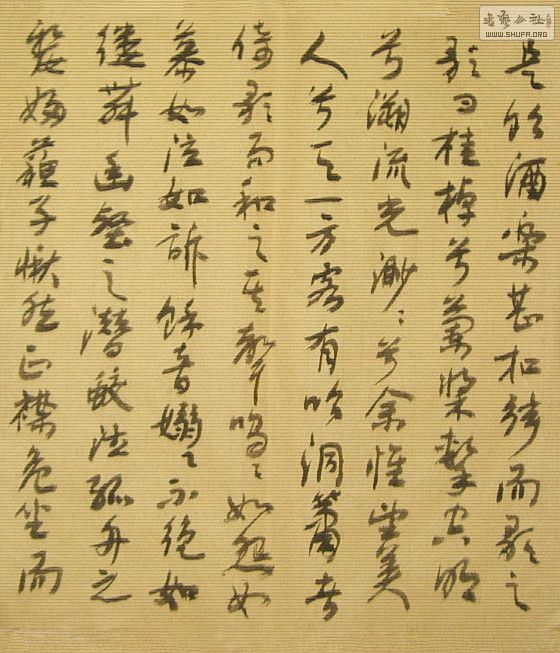 是飲酒樂甚扣舷而歌之
歌曰桂棹兮蘭槳擊空明
兮溯流光渺〻兮余懷望美
人兮天一方客有吹洞簫者
倚歌而和之其聲嗚〻如怨如
慕如泣如訴餘音嫋〻不絕如
縷舞幽壑之潛蛟泣孤舟之
嫠婦蘇子愀然正襟危坐而
WWW.SHUFA.ORG